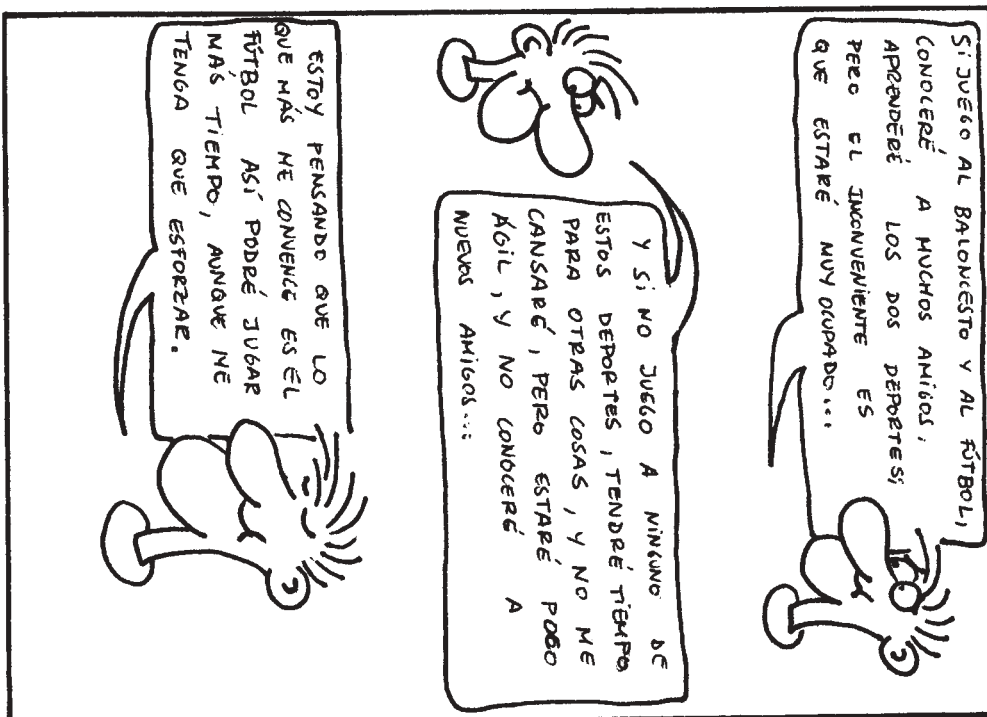 SI JUEGO AL BALONCESTO Y AL FÚTBOL,
CONOCERÉ A MUCHOS AMIGOS,
APRENDERÉ LOS DOS DEPORTES;
PERO EL INCONVENIENTE ES
QUE ESTARÉ MUY OCUPADO...
Y SI NO JUEGO A NINGUNO DE
ESTOS DEPORTES, TENDRÉ TIEMPO
PARA OTRAS COSAS, Y NO ME
CANSARÉ, PERO ESTARÉ POCO
ÁGIL, Y NO CONOCERÉ A
NUEVOS AMIGOS...
ESTOY PENSANDO QUE LO
QUE MÁS ME CONVENCE ES EL
FÚTBOL ASÍ PODRÉ JUGAR
MÁS TIEMPO, AUNQUE ME
TENGA QUE ESFORZAR.